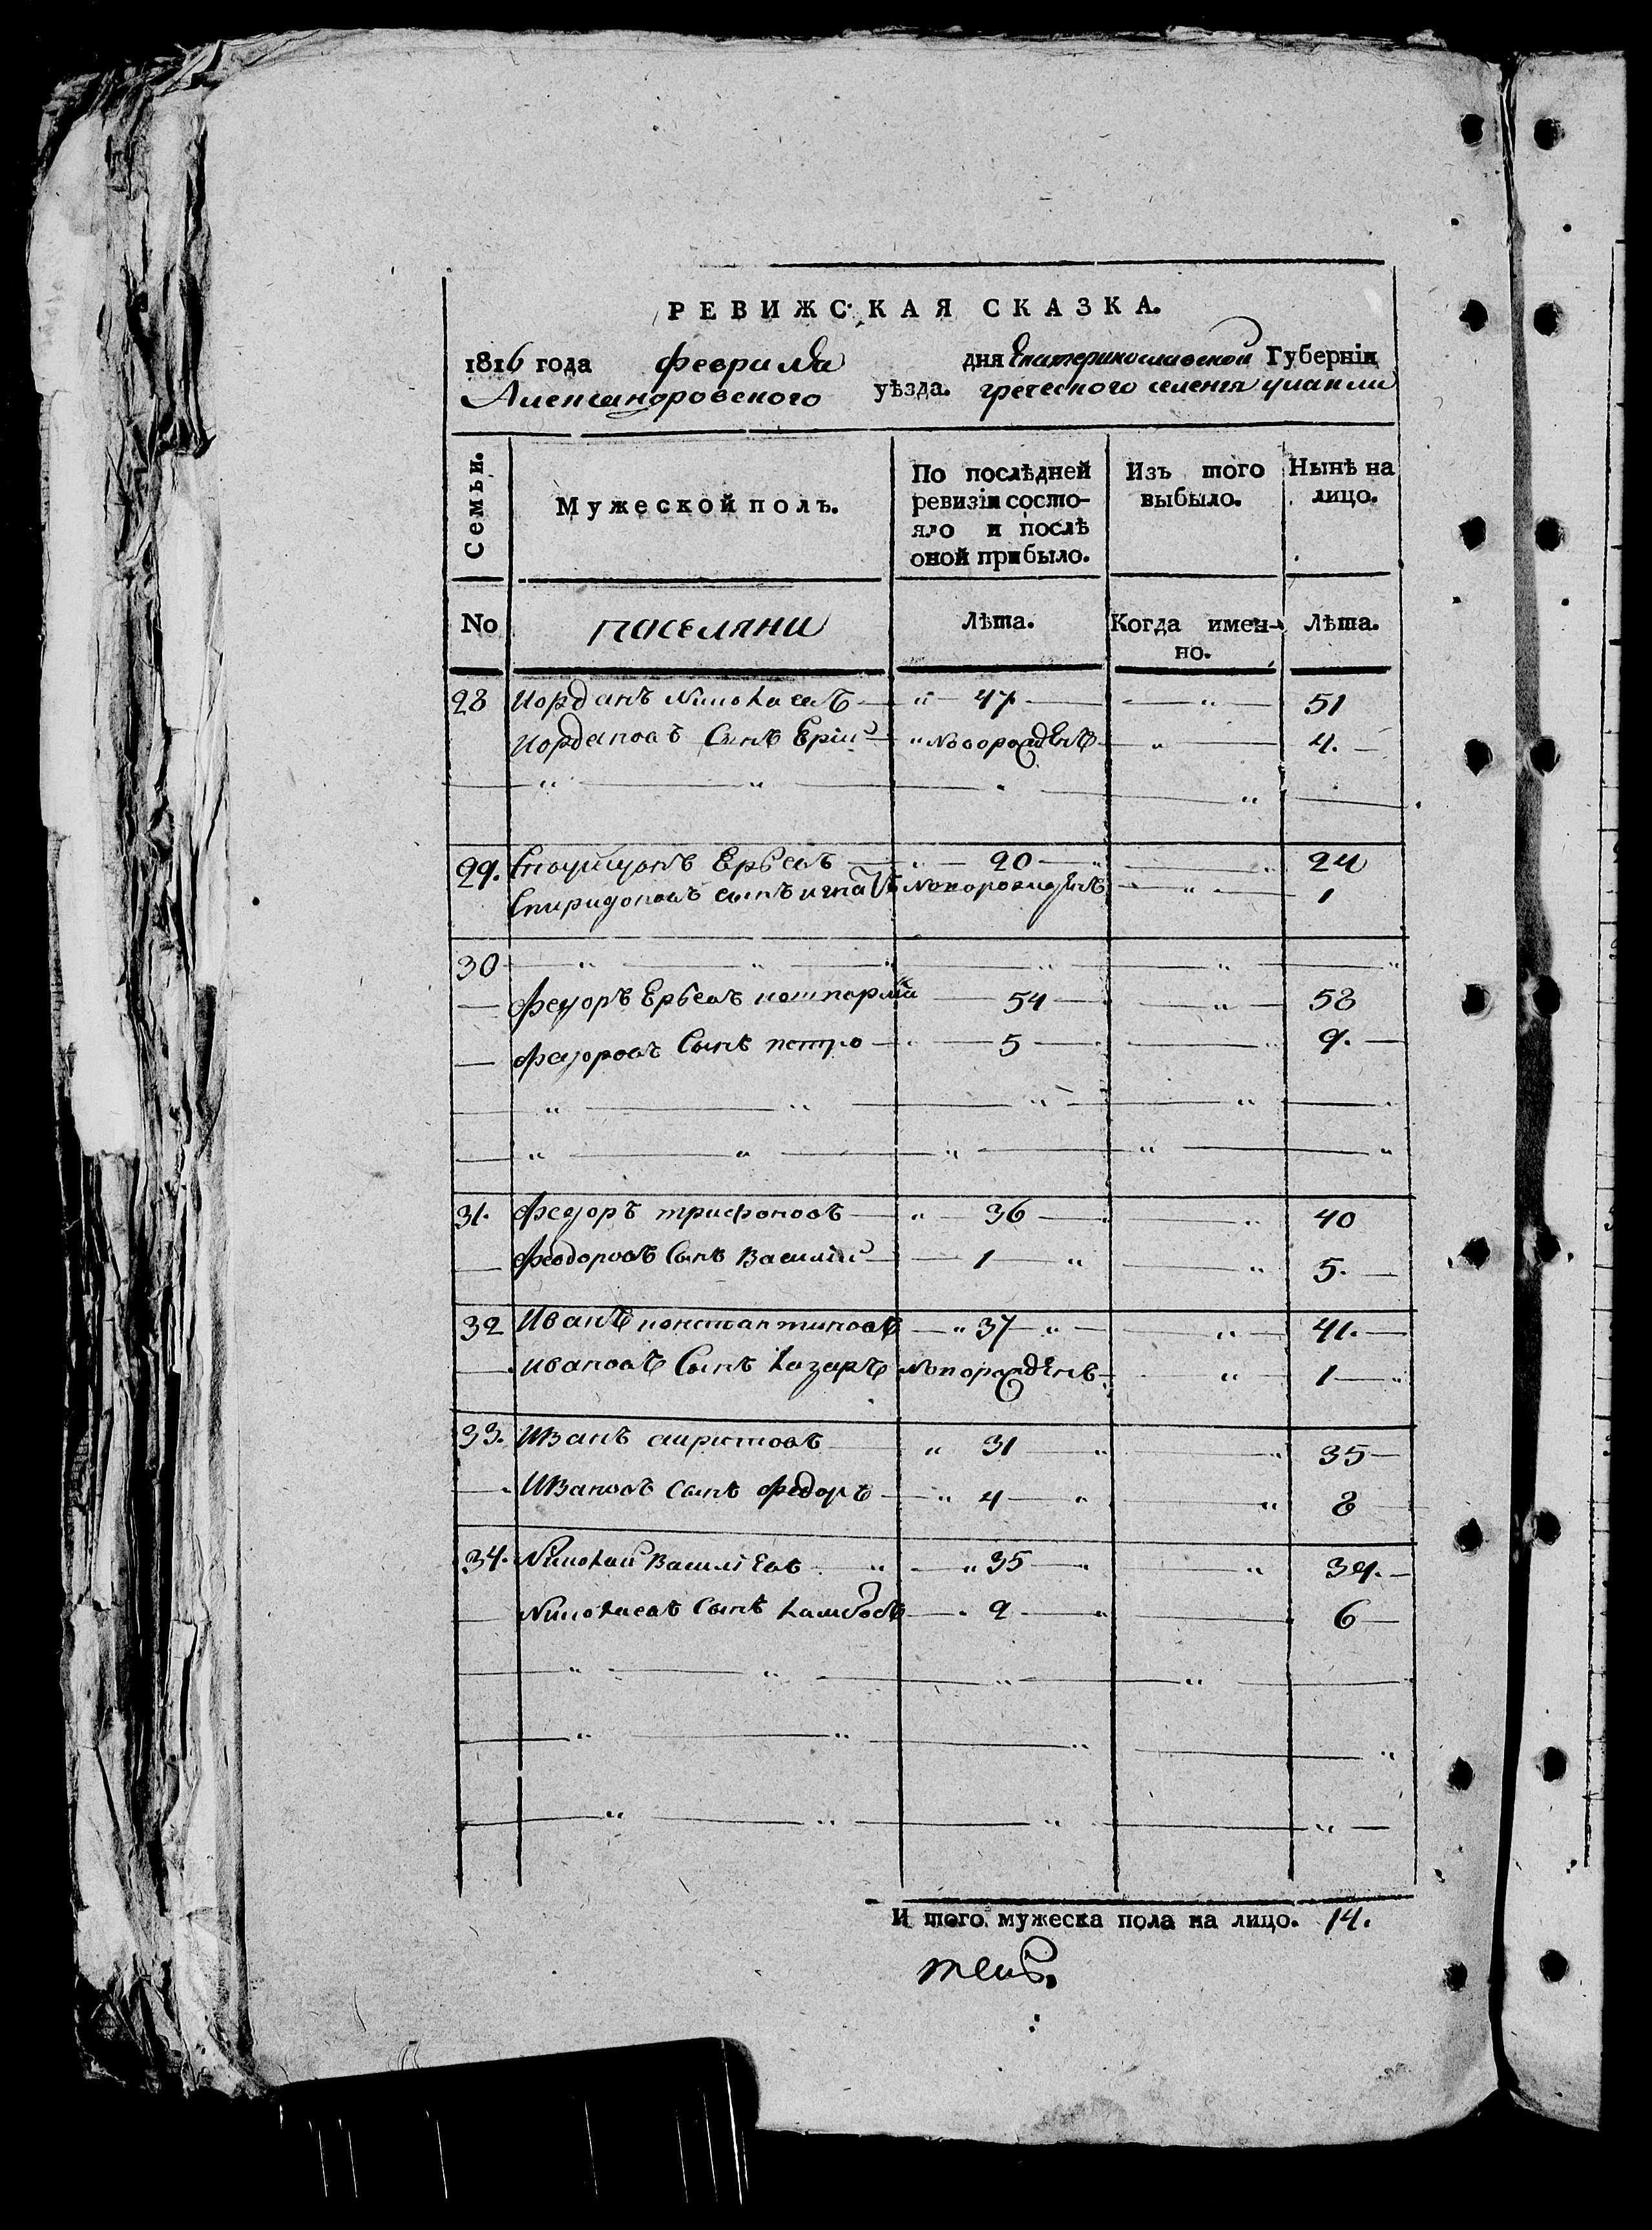 РЕВИЖСКАЯ СКАЗКА.
1816 года февраля дня Екатеринославской Губернїи
Александровского уѣзда. греческого селения улаклы
Семьи. Мужеской полъ. По послѣдней ревизїи состояло и послѣ оной прибыло. Изъ того выбыло. Нынѣ на лицо.
No поселяни Лѣта. Когда именно. Лѣта.
28 Иорданъ Николаевъ 47 51
Иордановъ Сынъ новорожденъ 4.
29. Ербевъ 20 24
Спиридоновъ сынъ игнатъ новорожденъ 1
30
федоръ Ербевъ 54 58
федоровъ Сынъ петро 5 9.
31. федоръ трифоновъ 36 40
феодоровъ Сынъ Василий 1 5.
32 Иванъ константиновъ 37 41.
ивановъ Сынъ лазаръ новорожденъ 1
33. Иванъ 31 35
Ивановъ сынъ федоръ 4 8
34. Николай Василїевъ 35 39.
Николаевъ Сынъ 2 6
И того мужеска пола на лицо. 14.